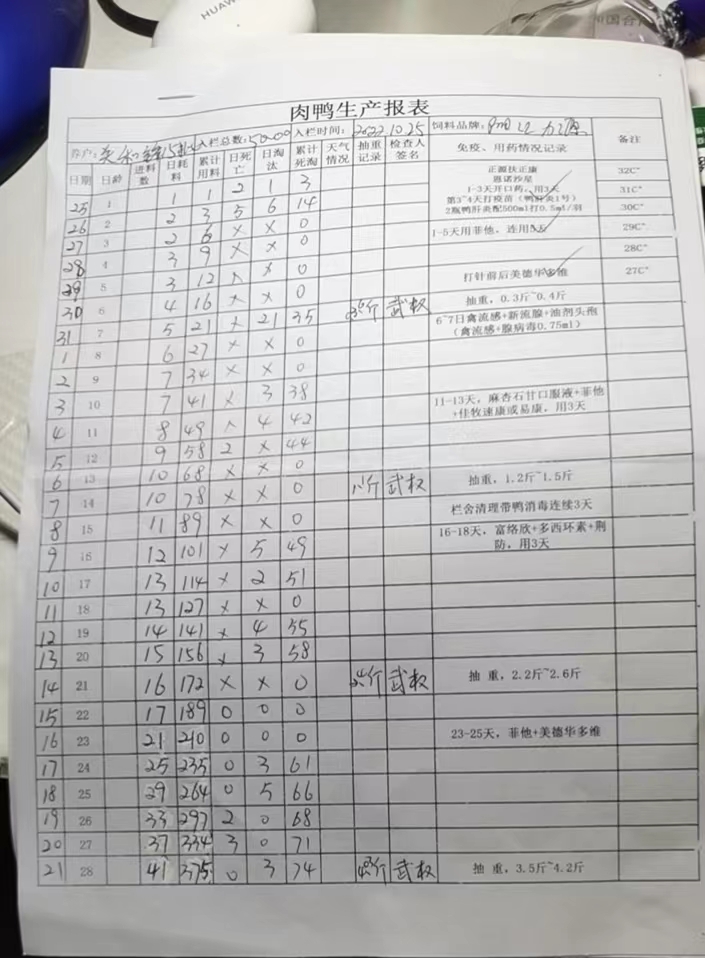 HUAW
国合
肉鸭生产报表
养户: 入栏总数: 5000 入栏时间: 2022.10.25 饲料品牌:
日期 日龄 进料数 日耗料 累计用料 日死亡 日淘汰 累计死淘 天气情况 抽重记录 检查人签名 免疫、用药情况记录 备注
25 1 1 1 2 1 3 正源扶正康 32C°
恩诺沙星
1-3天开口药,用3天 31C°
26 2 2 3 5 6 14 第3~4天打疫苗(鸭肝炎1号)
2瓶鸭肝炎配500ml打0.5ml/羽 30C°
27 3 2 6 × × 0 1-5天用菲他,连用5天 29C°
28 4 3 9 × × 0 28C°
29 5 3 12 × × 0 打针前后美德华多维 27C°
30 6 4 16 × × 0 武权 抽重,0.3斤~0.4斤
31 7 5 21 × 21 35 6~7日禽流感+新流腺+油剂头孢
(禽流感+腺病毒0.75ml)
1 8 6 27 × × 0
2 9 7 34 × × 0
3 10 7 41 × 3 38 11-13天,麻杏石甘口服液+菲他
+佳牧速康或易康,用3天
4 11 8 49 × 4 42
5 12 9 58 2 × 44
6 13 10 68 × × 0 武权 抽重,1.2斤~1.5斤
7 14 10 78 × × 0 栏舍清理带鸭消毒连续3天
8 15 11 89 × × 0 16-18天,富络欣+多西环素+荆
防,用3天
9 16 12 101 × 5 49
10 17 13 114 × 2 51
11 18 13 127 × × 0
12 19 14 141 × 4 55
13 20 15 156 × 3 58
14 21 16 172 × × 0 武权 抽 重,2.2斤~2.6斤
15 22 17 189 0 0 0
16 23 21 210 0 0 0 23-25天,菲他+美德华多维
17 24 25 235 0 3 61
18 25 29 264 0 5 66
19 26 33 297 2 0 68
20 27 37 334 3 0 71
21 28 41 375 0 3 74 武权 抽 重,3.5斤~4.2斤